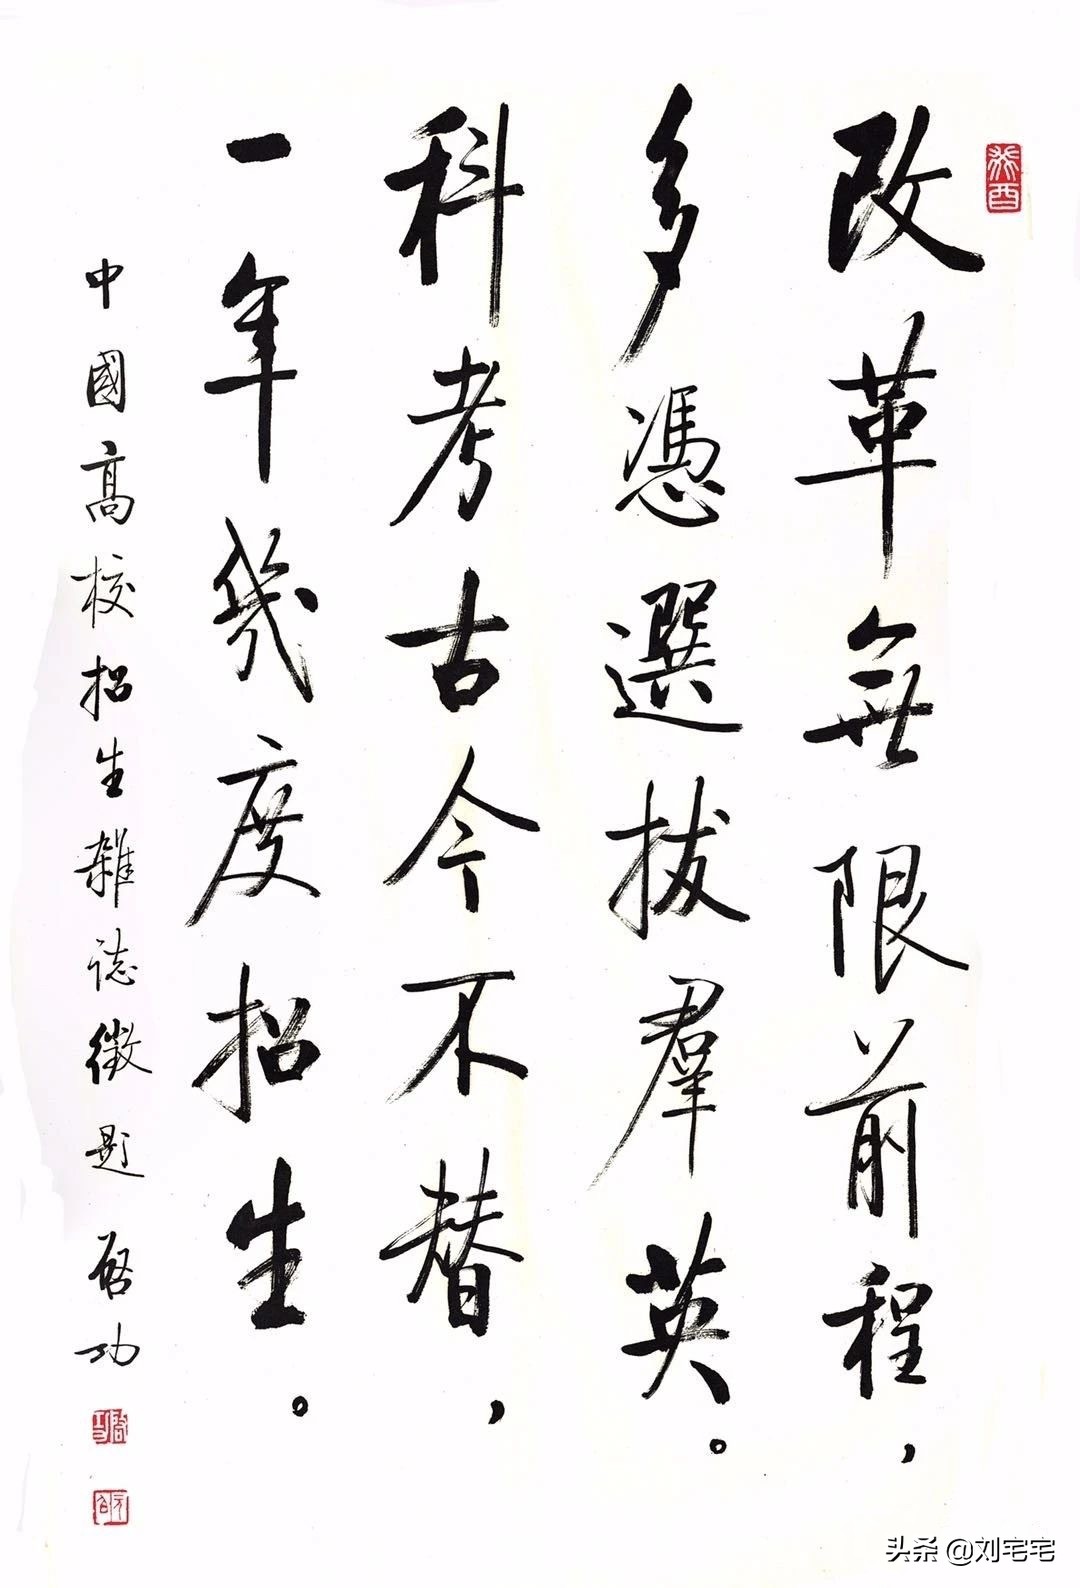 癸酉
改革無限前程，
多憑選拔羣英。
科考古今不替，
一年幾度招生。
中國高校招生雜誌徵題 啓功
啓功
元白
头条 @刘宅宅